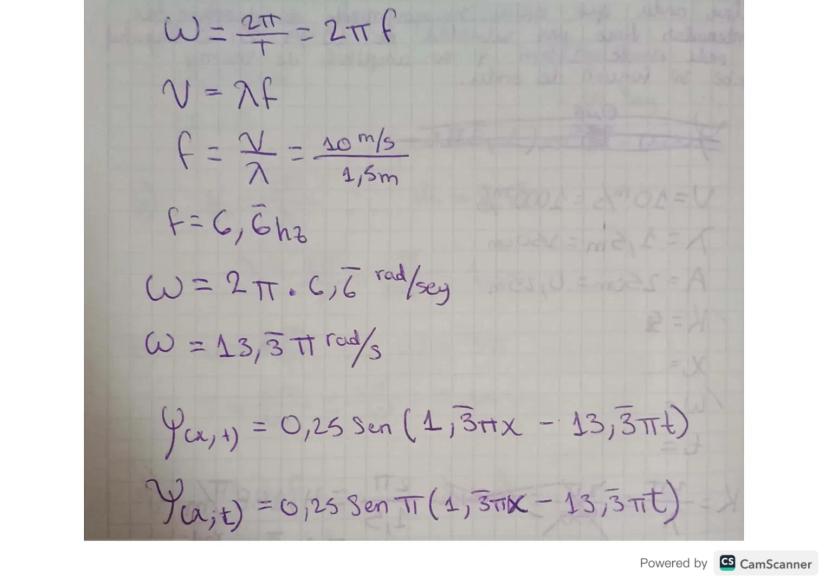 ω = 2π/T = 2πf
V = λf
f = V/λ = 10 m/s / 1,5m
f = 6,6̄ hz
ω = 2π . 6,6̄ rad/seg
ω = 13,3̄ π rad/s
Ψ(x,t) = 0,25 Sen (1,3̄πx - 13,3̄πt)
Ψ(x;t) = 0,25 Sen π (1,3̄πx - 13,3̄πt)
Powered by CS CamScanner